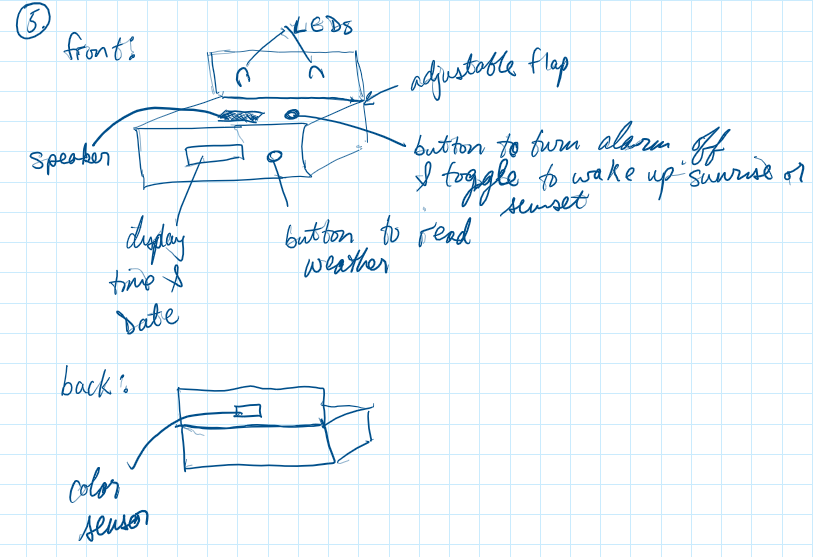 5.
front:
LEDs
adjustable flap
speaker
button to turn alarm off
& toggle to wake up sunrise or
sunset
display
time &
Date
button to read
weather
back:
color
sensor